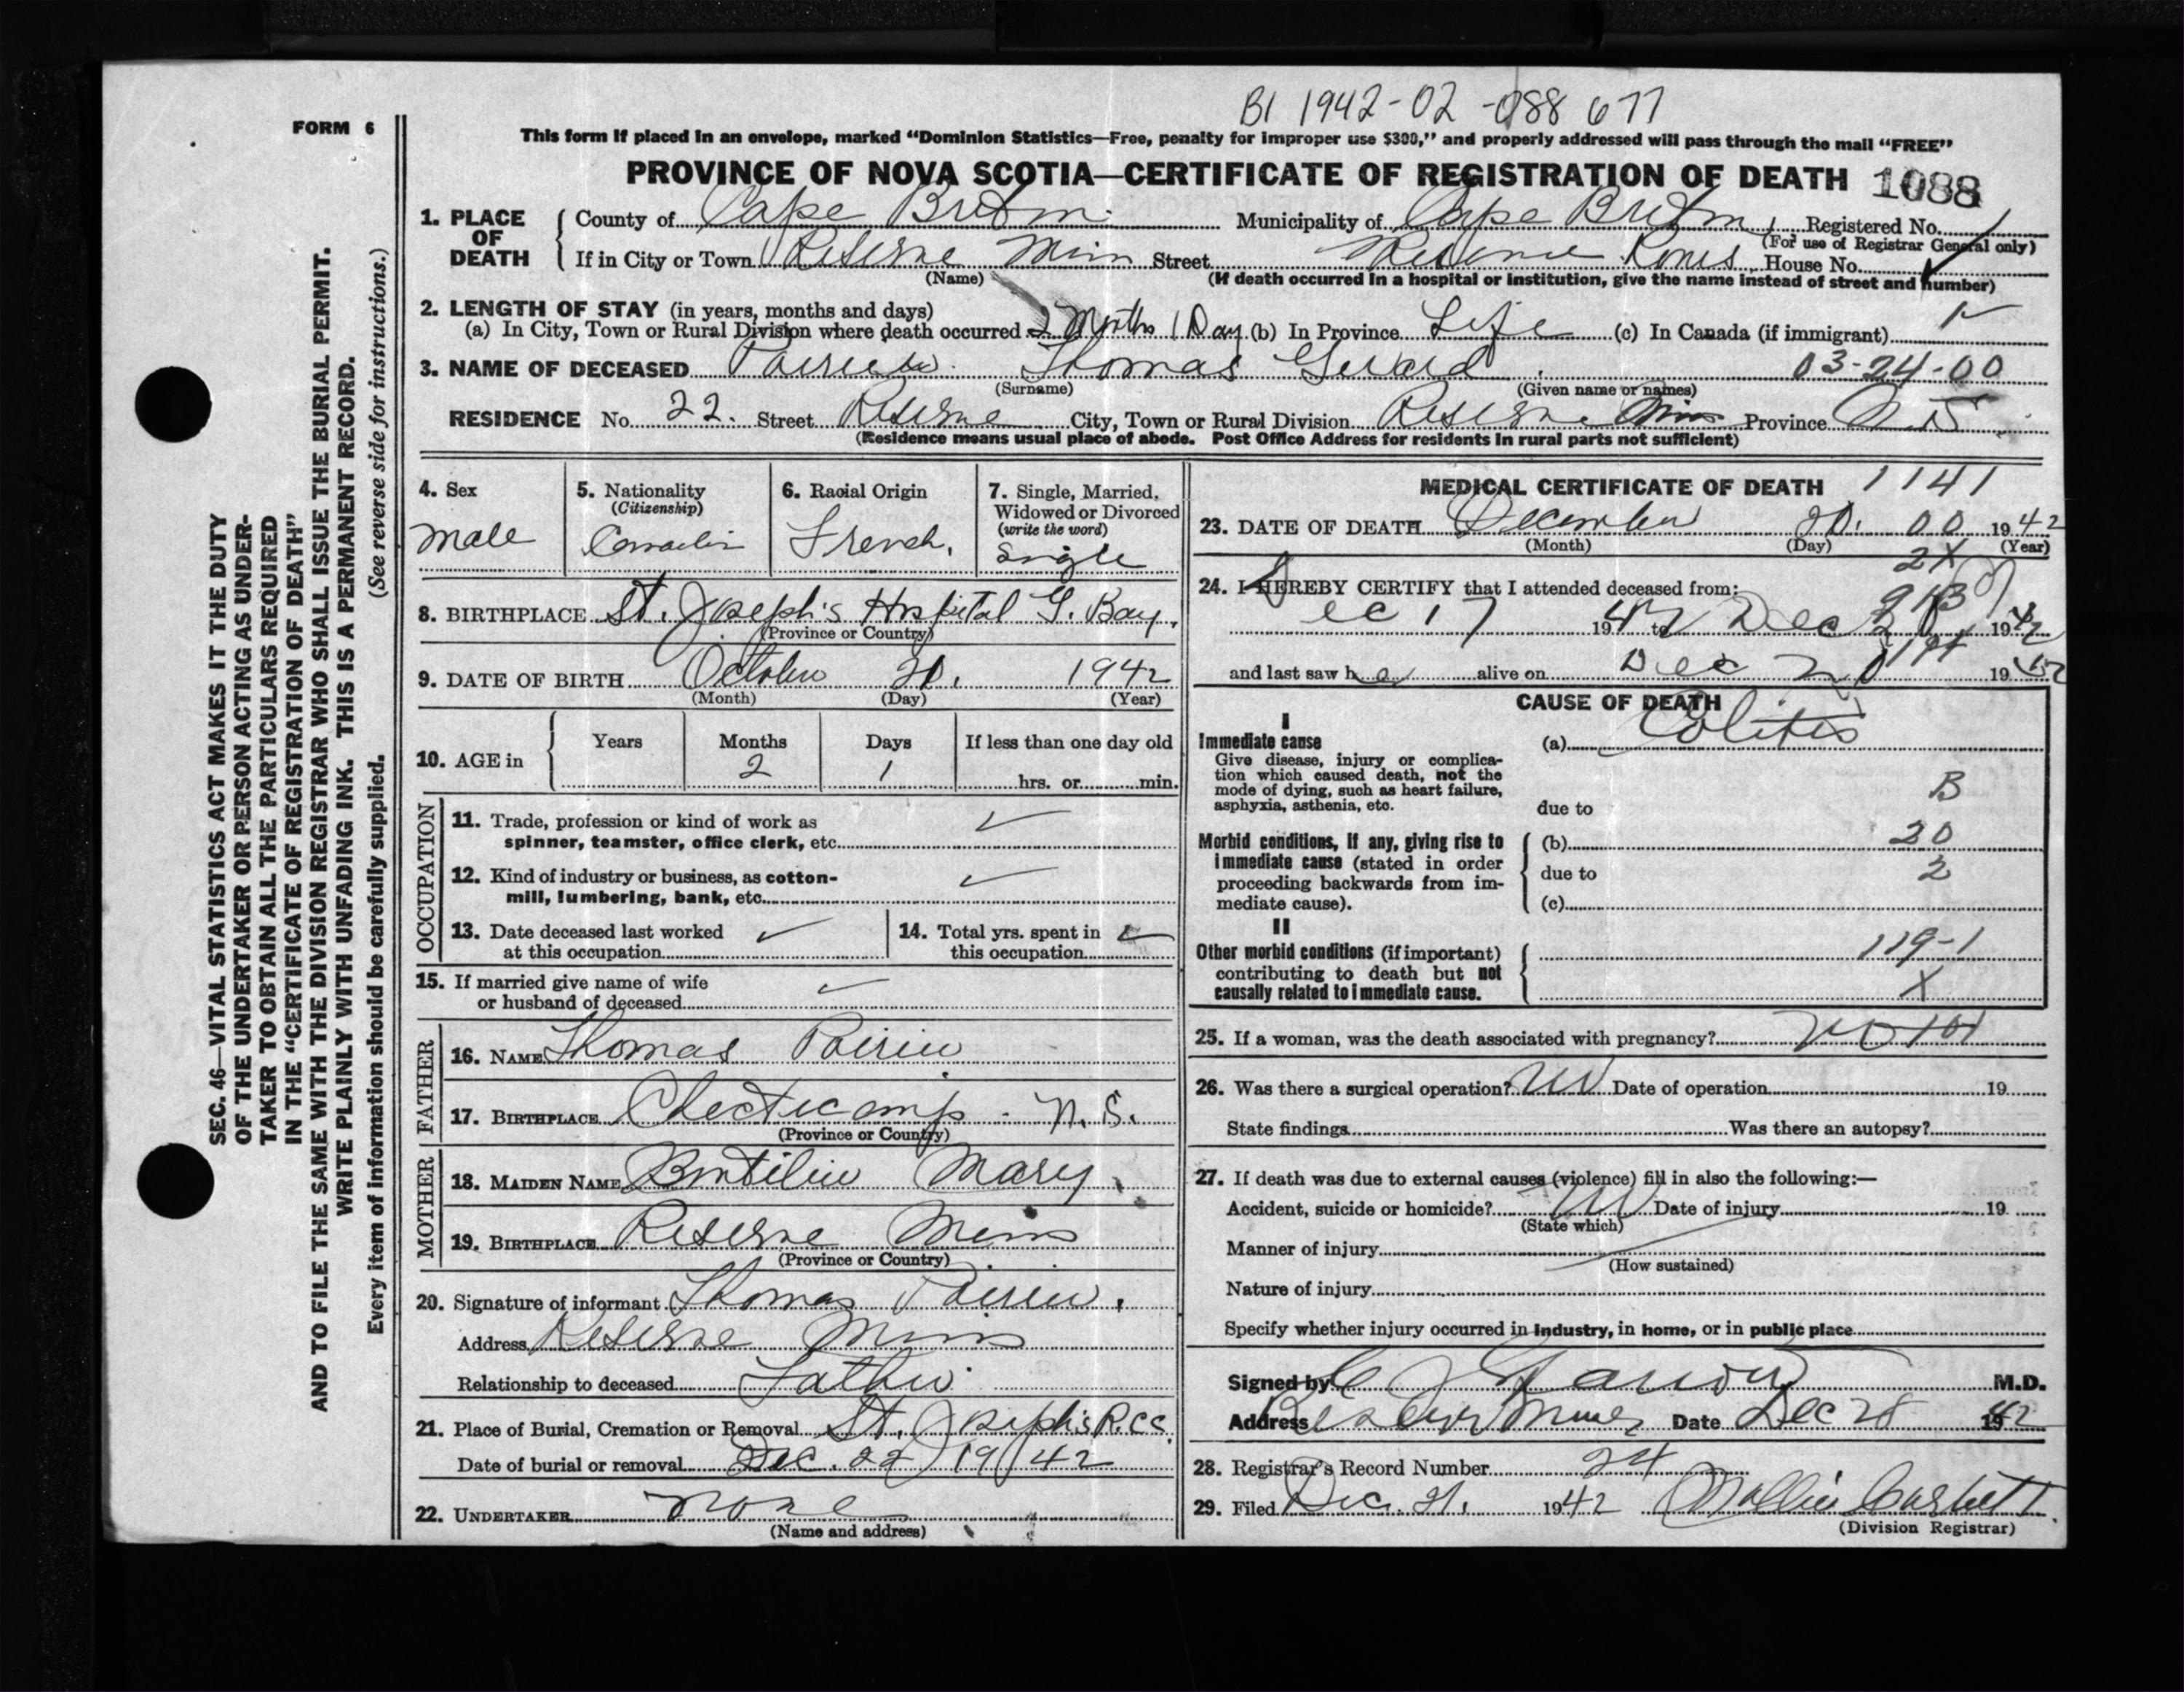 BI 1942-02-088677
FORM 6
This form if placed in an envelope, marked “Dominion Statistics—Free, penalty for improper use $300,” and properly addressed will pass through the mail “FREE”
PROVINCE OF NOVA SCOTIA—CERTIFICATE OF REGISTRATION OF DEATH 1088
1. PLACE OF DEATH
County of Cape Breton Municipality of Cape Breton Registered No.
(For use of Registrar General only)
If in City or Town Reserve Mines Street House No.
(Name) (If death occurred in a hospital or institution, give the name instead of street and number)
2. LENGTH OF STAY (in years, months and days)
(a) In City, Town or Rural Division where death occurred 2 Months 1 Day (b) In Province Life (c) In Canada (if immigrant)
3. NAME OF DECEASED Thomas Gerard 03-24-00
(Surname) (Given name or names)
RESIDENCE No. 22. Street Reserve City, Town or Rural Division Reserve Mines Province N.S.
(Residence means usual place of abode. Post Office Address for residents in rural parts not sufficient)
4. Sex
male
5. Nationality
(Citizenship)
Canadian
6. Racial Origin
French.
7. Single, Married, Widowed or Divorced
(write the word)
Single
8. BIRTHPLACE St. Joseph's Hospital G. Bay.
(Province or Country)
9. DATE OF BIRTH October 20. 1942
(Month) (Day) (Year)
10. AGE in Years Months Days If less than one day old
2 1 hrs. or min.
OCCUPATION
11. Trade, profession or kind of work as
spinner, teamster, office clerk, etc.
12. Kind of industry or business, as cotton-
mill, lumbering, bank, etc.
13. Date deceased last worked
at this occupation
14. Total yrs. spent in
this occupation
15. If married give name of wife
or husband of deceased
FATHER
16. NAME Thomas
17. BIRTHPLACE Checticamp. N.S.
(Province or Country)
MOTHER
18. MAIDEN NAME Mary
19. BIRTHPLACE Reserve Mines
(Province or Country)
20. Signature of informant Thomas
Address Reserve Mines
Relationship to deceased Father
21. Place of Burial, Cremation or Removal St. Joseph's R.C.C.
Date of burial or removal Dec. 22 1942
22. UNDERTAKER none
(Name and address)
MEDICAL CERTIFICATE OF DEATH 1141
23. DATE OF DEATH December 20. 00 1942
(Month) (Day) (Year)
2X
24. I HEREBY CERTIFY that I attended deceased from:
Dec 17 1942 to Dec 20 1942
and last saw h alive on Dec 20 1942
CAUSE OF DEATH
I
Immediate cause
Give disease, injury or complica-
tion which caused death, not the
mode of dying, such as heart failure,
asphyxia, asthenia, etc.
(a) Colitis
B
due to
Morbid conditions, if any, giving rise to
immediate cause (stated in order
proceeding backwards from im-
mediate cause).
(b) 20
due to 2
(c)
II
Other morbid conditions (if important)
contributing to death but not
causally related to immediate cause.
119-1
X
25. If a woman, was the death associated with pregnancy?
26. Was there a surgical operation? no Date of operation 19
State findings Was there an autopsy?
27. If death was due to external causes (violence) fill in also the following:—
Accident, suicide or homicide? no Date of injury 19
(State which)
Manner of injury
(How sustained)
Nature of injury
Specify whether injury occurred in industry, in home, or in public place
Signed by M.D.
Address Reserve Mines Date Dec 28 1942
28. Registrar's Record Number 24
29. Filed Dec. 21. 1942 Mollie Corbett
(Division Registrar)
SEC. 46—VITAL STATISTICS ACT MAKES IT THE DUTY
OF THE UNDERTAKER OR PERSON ACTING AS UNDER-
TAKER TO OBTAIN ALL THE PARTICULARS REQUIRED
IN THE “CERTIFICATE OF REGISTRATION OF DEATH”
AND TO FILE THE SAME WITH THE DIVISION REGISTRAR WHO SHALL ISSUE THE BURIAL PERMIT.
WRITE PLAINLY WITH UNFADING INK. THIS IS A PERMANENT RECORD.
Every item of information should be carefully supplied. (See reverse side for instructions.)